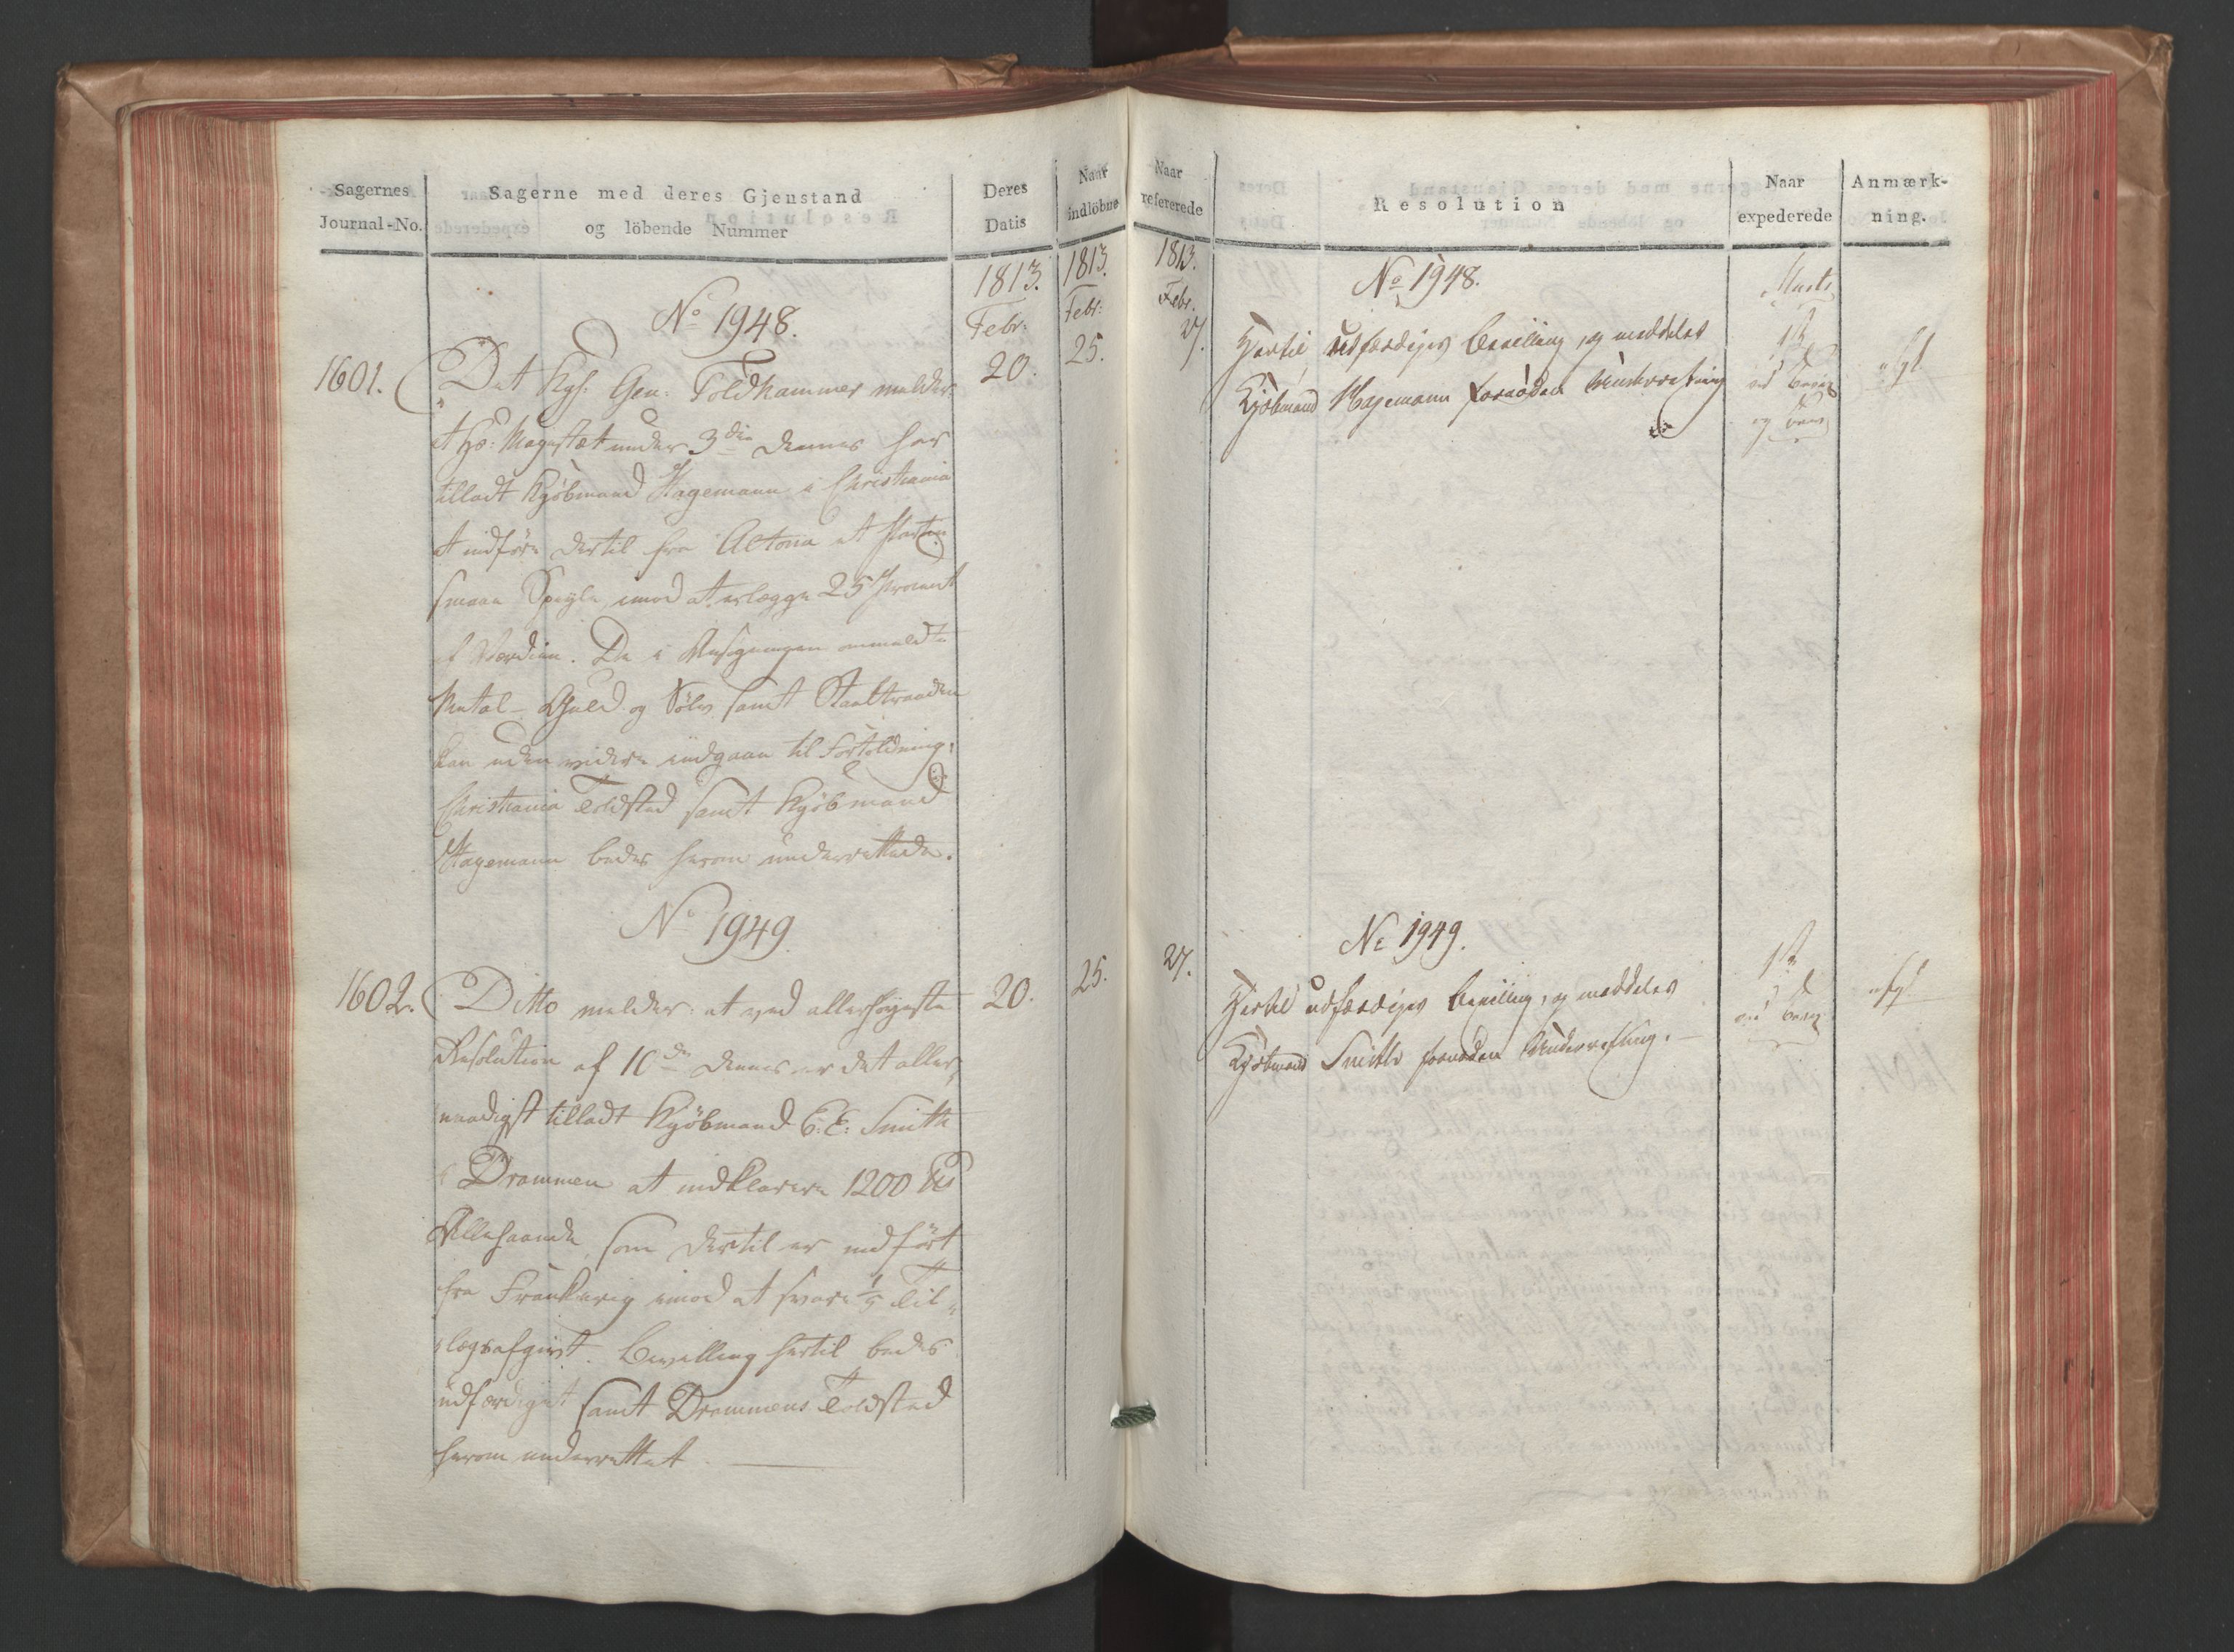 Sagernes
Journal-No.
Sagerne med deres Gjenstand
og löbende Nummer
Deres
Datis
Naar
indlöbne
1813.
Febr:
1813.
Febr:
No 1948.
1601.
20.
25.
Det Kgl. Gen: Toldkammer melder
at Hs: Majestæt under 3die dennes har
tilladt Kjöbmand Hagemann i Christiania
at indföre dertil fra Altona et Partie
smaae Speyle, imod at erlægge 25 Procent
af Værdien. De i Ansögningen ommeldte
Metal- Guld og Sölv samt Staaltraade
kan uden videre indgaae til Fortoldning.
Christiania Toldsted samt Kjöbmand
Hagemann bedes herom underrettede.
No 1949
1602.
20.
25.
Ditto melder: at ved allerhöyeste
Resolution af 10de dennes er det aller-
naadigst tilladt Kjöbmand C: E: Smith
i Drammen at indklarere 1200 Pd
Allehaande, som dertil er indfört
fra Frankerig imod at svare 1/5 Til-
lægsafgivt. Bevilling hertil bedes
udfærdiget samt Drammens Toldsted
herom underrettet.
Naar
refererede
Resolution
Naar
expederede
Anmærk-
ning.
1813.
Febr.
27.
No 1948.
Marts
1ste
Hertil udfærdiges Bevilling, og meddeles
Kjöbmand Hagemann fornöden Underretning
No 1949.
27.
1ste
Hertil udfærdiges Bevilling, og meddeles
Kjöbmand Smith fornöden Underretning.